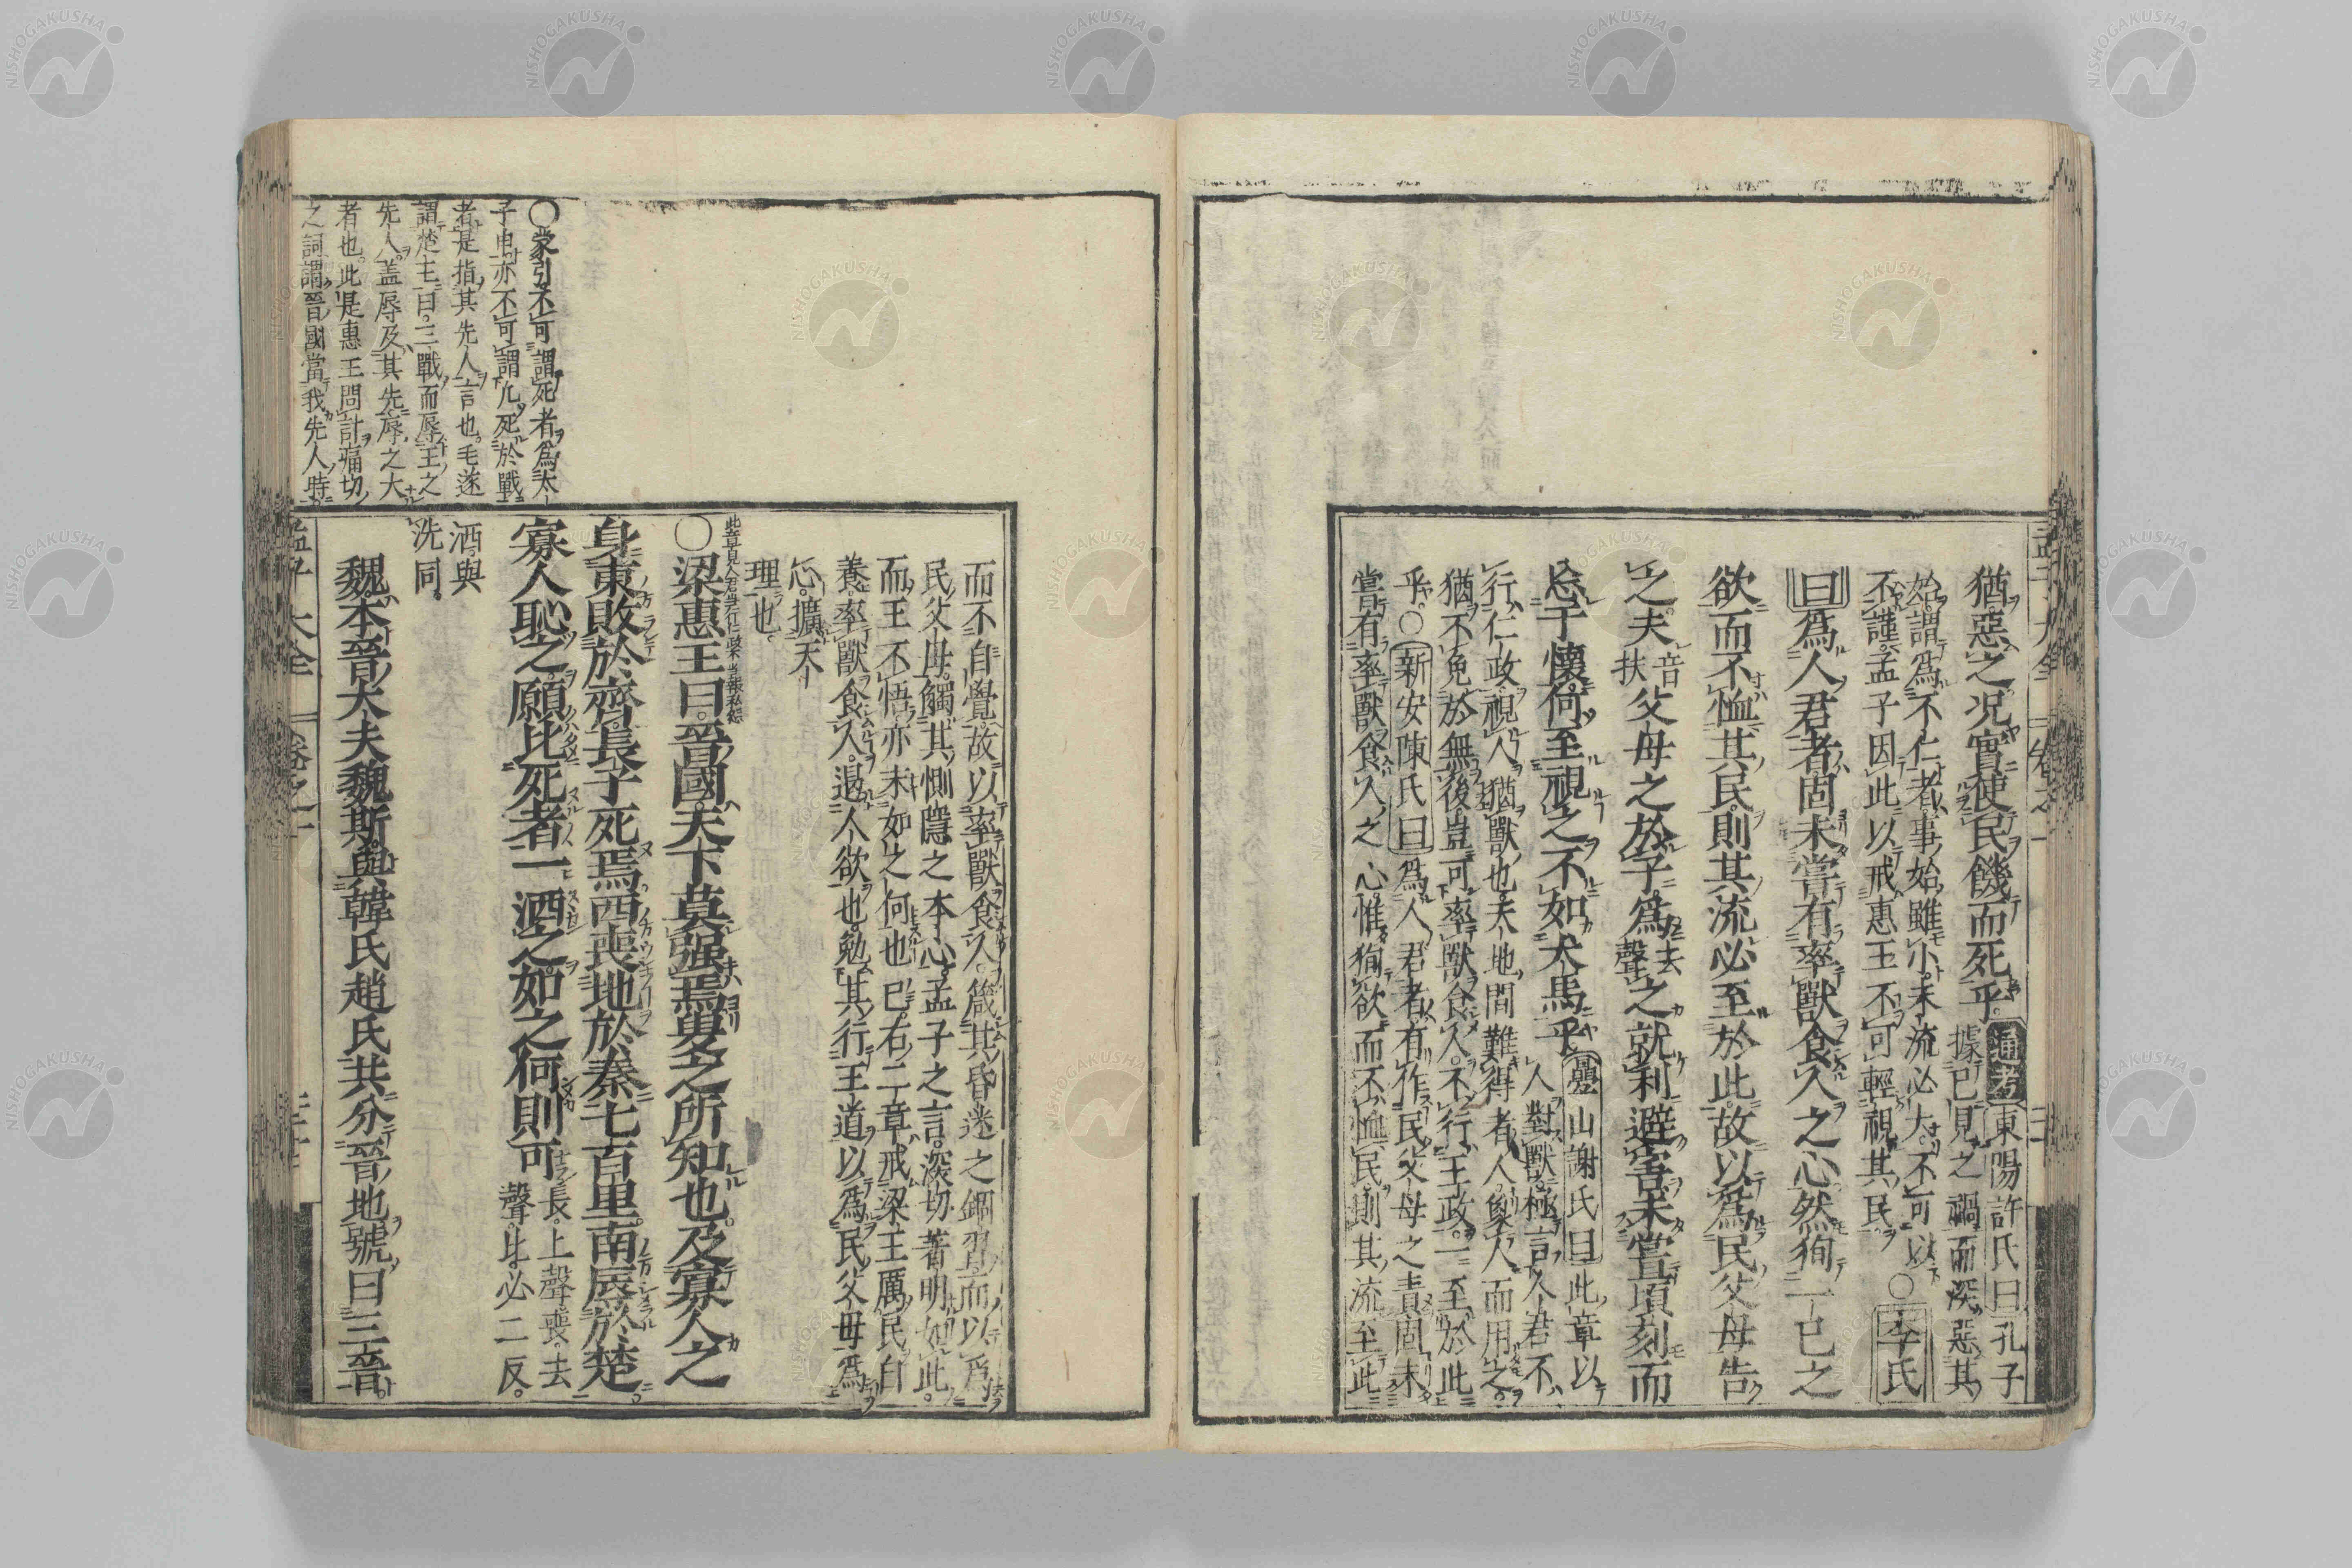 猶惡之况實使民饑而死乎。通考東陽許氏曰孔子
據已見之禍而深惡其
始。謂爲不仁者事始雖小。末流必大。不可以
不謹。孟子因此以戒惠王不可輕視其民。〇李氏
曰爲人君者固未嘗有率獸食人之心然徇一己之
欲而不恤其民。則其流必至於此。故以爲民父母告
之。夫音扶父母之於子爲去聲之就利避害未嘗頃刻而
忘于懷。何至視之不如犬馬乎疊山謝氏曰此章以
人對獸極言人君不
行仁政視人猶獸也天地間難得者人象人而用之。
猶不免於無後豈可率獸食人。不行王政。一至於此
乎。〇新安陳氏曰爲人君者有作民父母之責固未
嘗有率獸食人之心。惟徇欲而不恤民則其流至此
而不自覺。故以率獸食人。箴其昏迷之錮習。而以爲
民父母。觸其惻隱之本心。孟子之言。深切著明如此。
而王不悟亦末如之何也已。右二章戒梁王厲民自
養。率獸食人。遏人欲也。勉其行王道以爲民父母爲
心。擴天
理也。
此章見人君當行仁政不當報私怨
〇梁惠王曰。晉國天下莫强焉叟之所知也。及寡人之
身東敗於齊。長子死焉西喪地於秦七百里。南辱於楚。
寡人恥之。願比死者一洒之。如之何則可長。上聲喪。去
聲。比必二反。
洒與
洗同。
魏本晉大夫魏斯與韓氏趙氏共分晉地號曰三晉。
〇蒙引不可謂死者爲太
子申亦不可謂凡死於戰
者是指其先人言也。毛遂
謂楚王曰。三戰而辱王之
先人。盖辱及其先辱之大
者也。此是惠王問計痛切
之詞謂晉國當我先人時
孟子大全
卷之一